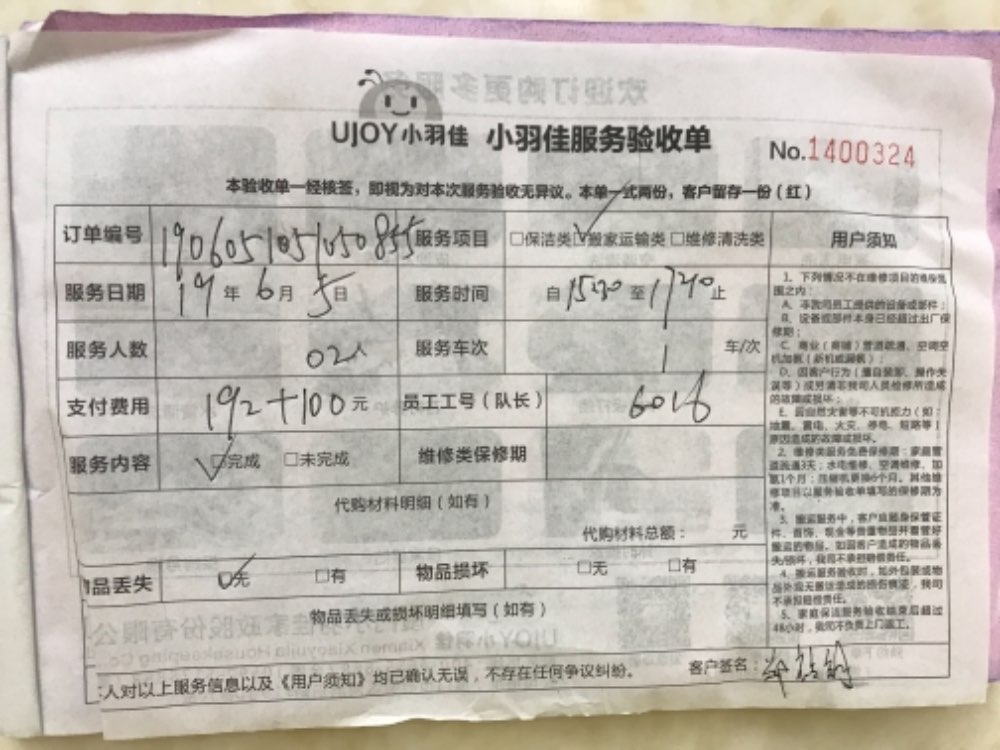 UJOY小羽佳 小羽佳服务验收单 No.1400324
本验收单一经核签，即视为对本次服务验收无异议。本单一式两份，客户留存一份（红）
订单编号 190605105105085 服务项目 □保洁类 ☑搬家运输类 □维修清洗类 用户须知
服务日期 19年6月5日 服务时间 自1520至1740止
服务人数 02人 服务车次 1 车/次
支付费用 192+100元 员工工号（队长） 6016
服务内容 ☑完成 □未完成 维修类保修期
代购材料明细（如有）
代购材料总额： 元
物品丢失 ☑无 □有 物品损坏 □无 □有
物品丢失或损坏明细填写（如有）
人对以上服务信息以及《用户须知》均已确认无误，不存在任何争议纠纷。 客户签名：
1、下列情况不在维修项目的维保范围之内：
A、非我司员工提供的设备或部件；
B、设备或部件本身已经超过出厂保修期；
C、商业（商铺）管道疏通、空调空机加氨（新机或漏氨）；
D、因客户行为（擅自装家、操作失误等）或另请非我司人员检修所造成的故障或损坏；
E、因自然灾害等不可抗力（如：地震、雷电、火灾、停电、短路等）原因造成的故障或损坏。
2、维修类服务免费保修期：家庭管道疏通3天；水电维修、空调维修、加氨1个月；压缩机更换6个月。其他维修项目以服务验收单填写的保修期为准。
3、搬运服务中，客户应随身保管证件、首饰、现金等贵重物品并看管好搬运的物品。如因客户造成的物品丢失/损坏，我司不承担赔偿责任。
4、搬运服务验收时，如外包装或物品外观无搬运造成的损伤痕迹，我司不承担赔偿责任。
5、家庭保洁服务验收结束后超过48小时，我司不负责上门返工。